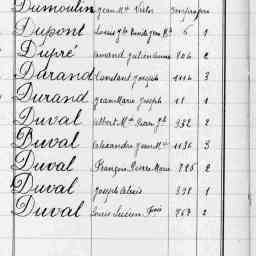 Dumoulin Jean Mie Victor
Dupont Louis 6 1
Dupré Armand Julien 806 2
Durand Constant Joseph 1116 3
Durand Jean Marie Joseph 18 1
Duval Albert Mie Jean 932 2
Duval Alexandre Jean Mie 1136 3
Duval François Pierre Marie 785 2
Duval Joseph Alexis 398 1
Duval Louis Lucien Fois 767 2